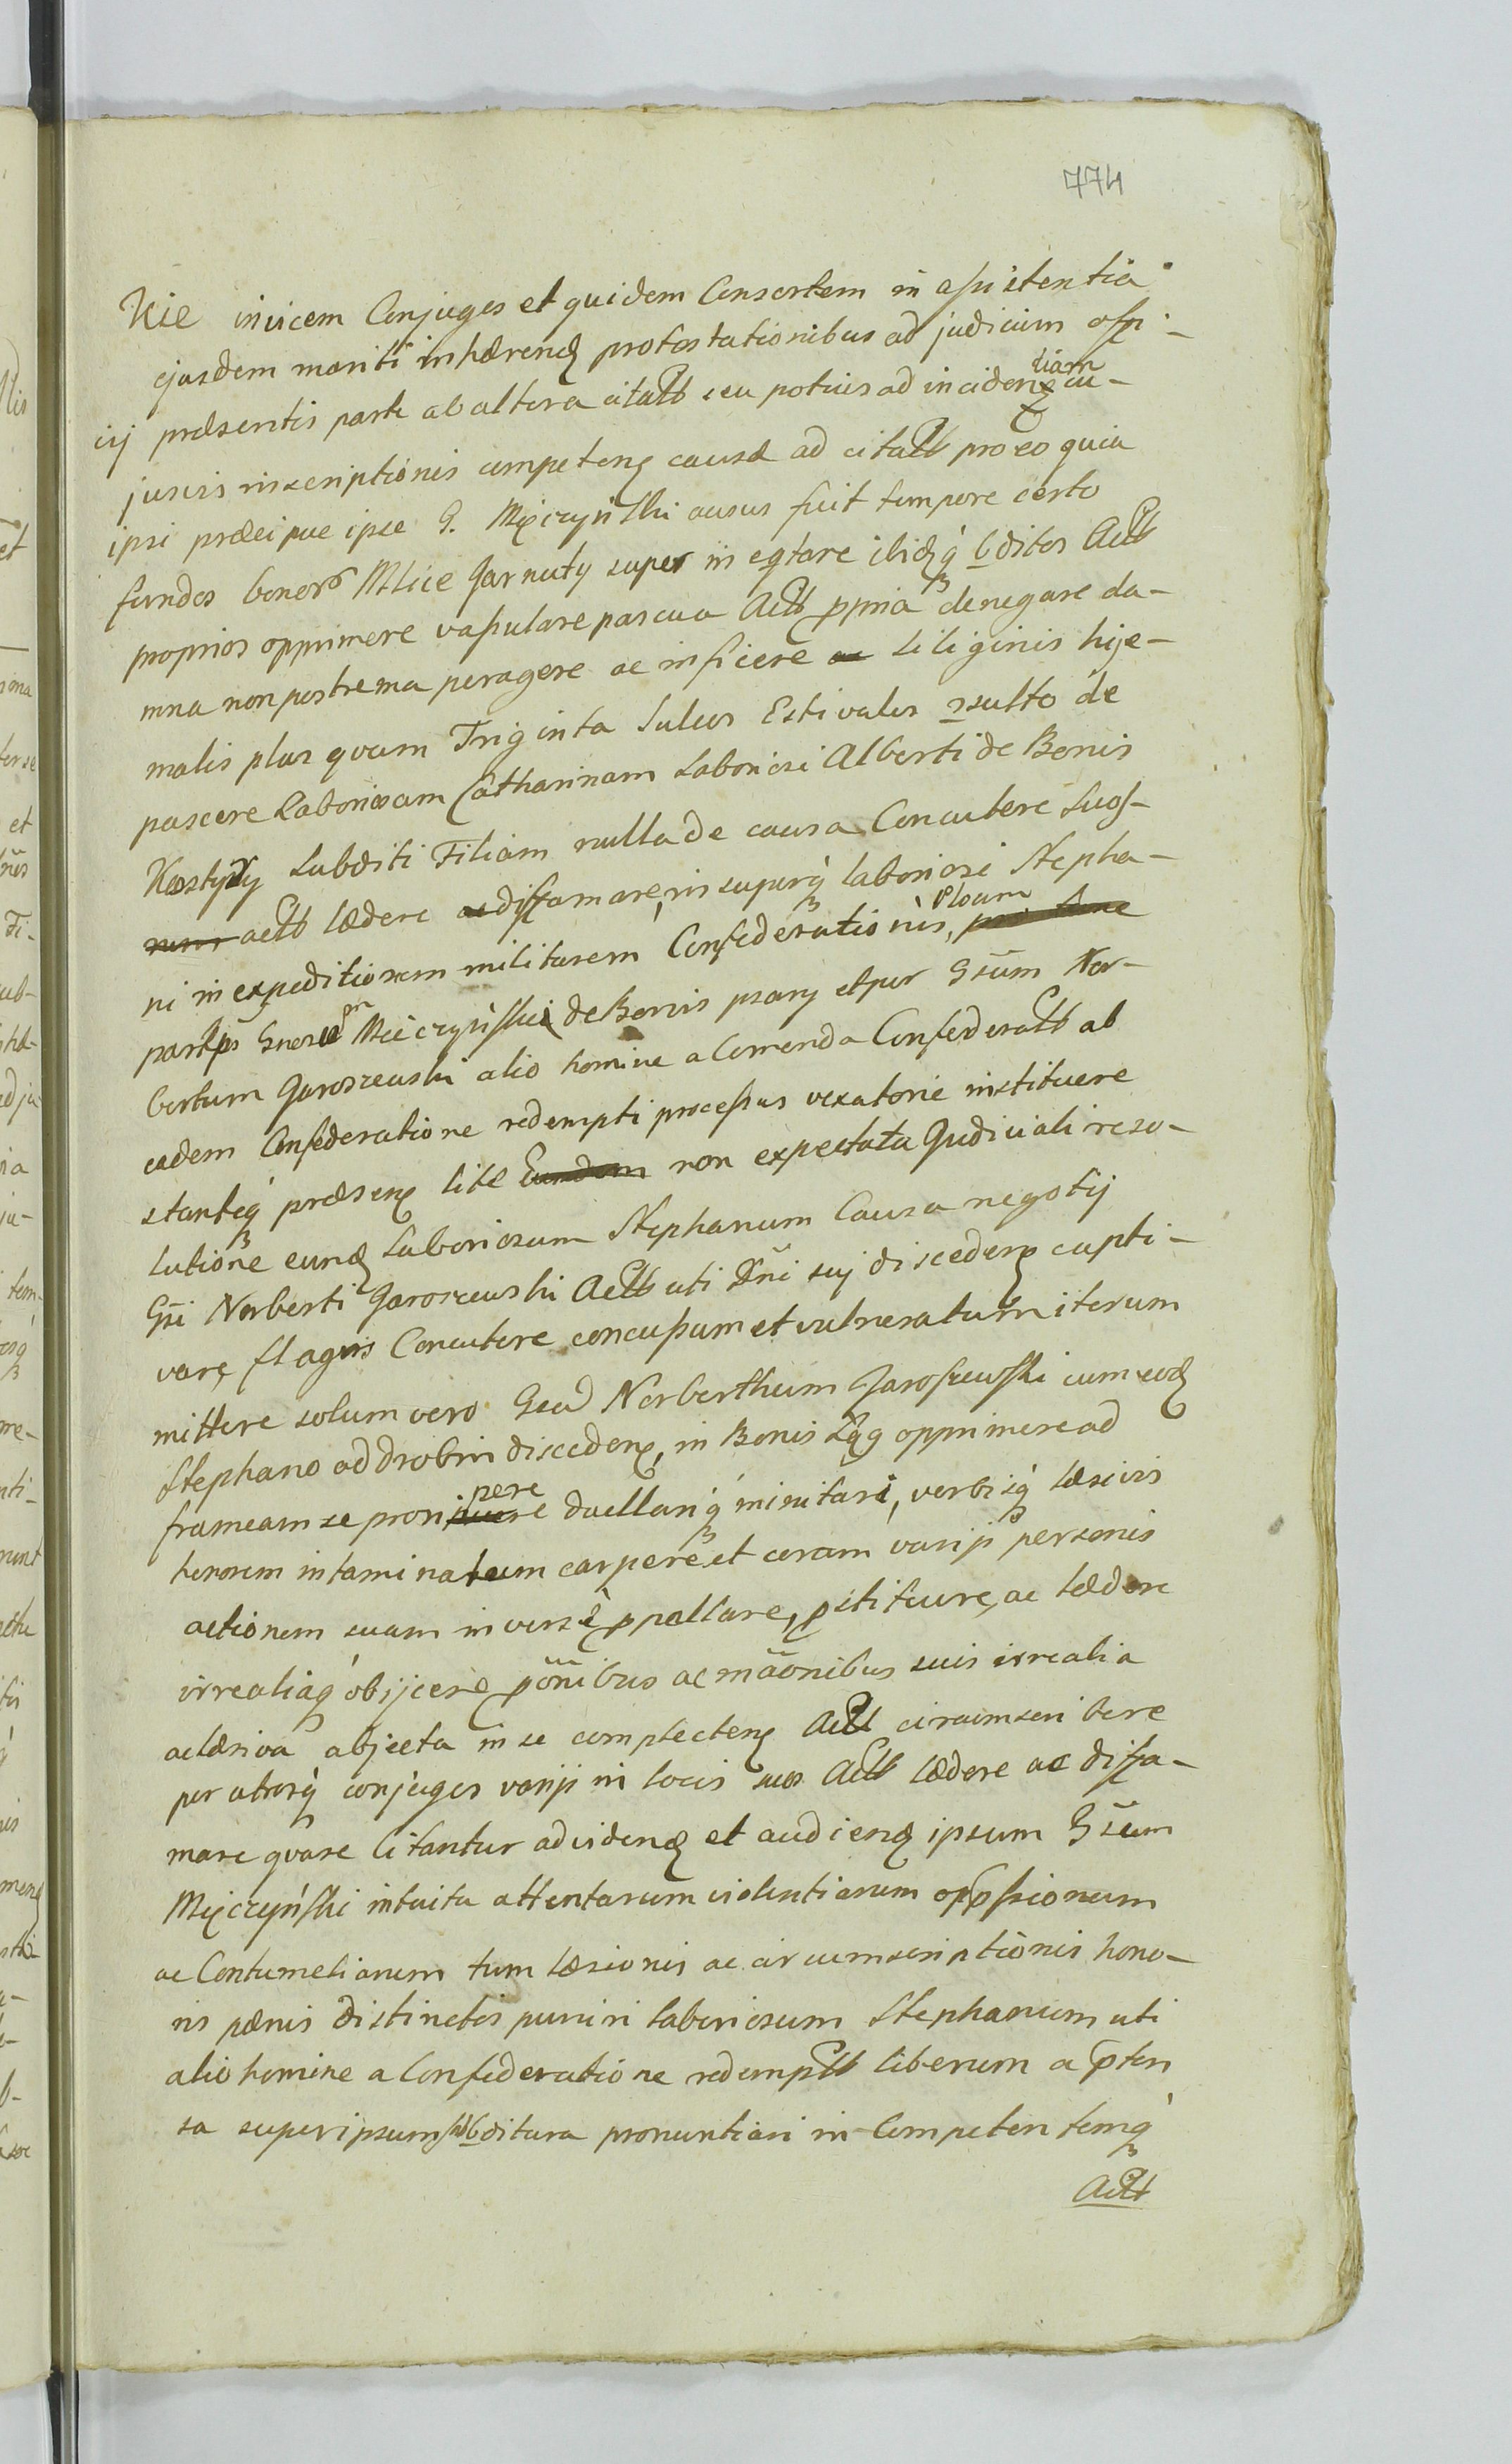 774
Kie invicem Conjuges et quidem Consortem in assistentia
ejusdem mariti inhærend protestationibus ad judicium offi-
cij præsentis parte ab altera citatt seu potius ad inciden tiam cu-
jusvis inscriptionis competen causæ ad citatt pro eo quia
ipsi præcipue ipse G. Mięczyński ausus fuit tempore certo
fundos bonor Mlice Jarnuty super in eqtare ibidq bditos Actt
proprios opprimere vapulare pascua Actt ppria denegare da-
mna non postrema peragere ac inficere ac siliginis hije-
malis plus quam Triginta Sulcos Estivales sultо de
pascere Laboriosam Catharinam Laboriosi Alberti de Bonis
Kostyry Subditi Filiam nulla de causa Concutere suos-
actt lædere ac diffamare, insuperq laboriosi Stepha-
ni in expeditionem militarem Confederationis,
partis Gnersæ Mięczyńskie de Bonis psany et per Gsum Nor-
bertum Jaroszewski alio homine a Comenda Confederatt ab
eadem Confederatione redempti processus vexatorie instituere
stanteq præsen lite Eundem non expectata Judiciali reso-
lutione eund Laboriosum Stephanum Causa negotij
Gsi Norberti Jaroszewski Actt uti Dni sui discedent capti-
vare, flagris Concutere concussum et vulneratum iterum
mittere solum vero Gsad Norberthum Jaroszewski cum eod
Stephano ad drobin disceden, in Bonis Łęg opprimere ad
frameam se prori pere duellariq minitari, verbisq læsivis
honorem intaminatum carpere et coram varijs personis
actionem suam inverse ppallare, pstituere, ac lædere
irrealiaq objicere pōnibus ac māonibus suis irrealia
ac læsiva objecta in se complecten Actt circumscribere
per utrosq conjuges varijs in locis suos Actt lædere ac diffa-
mare quare Citantur ad vidend et audiend ipsum Gsum
Mięczyński intuitu attentarum violentiarum oppssionum
ac Contumeliarum tum læsionis ac circumscriptionis hono-
ris pænis distinctis puniri laboriosum Stephanum uti
alio homine a Confederatione redemptt liberum a pten
sa super ipsum subditura pronuntiari in Competentemq
Actt